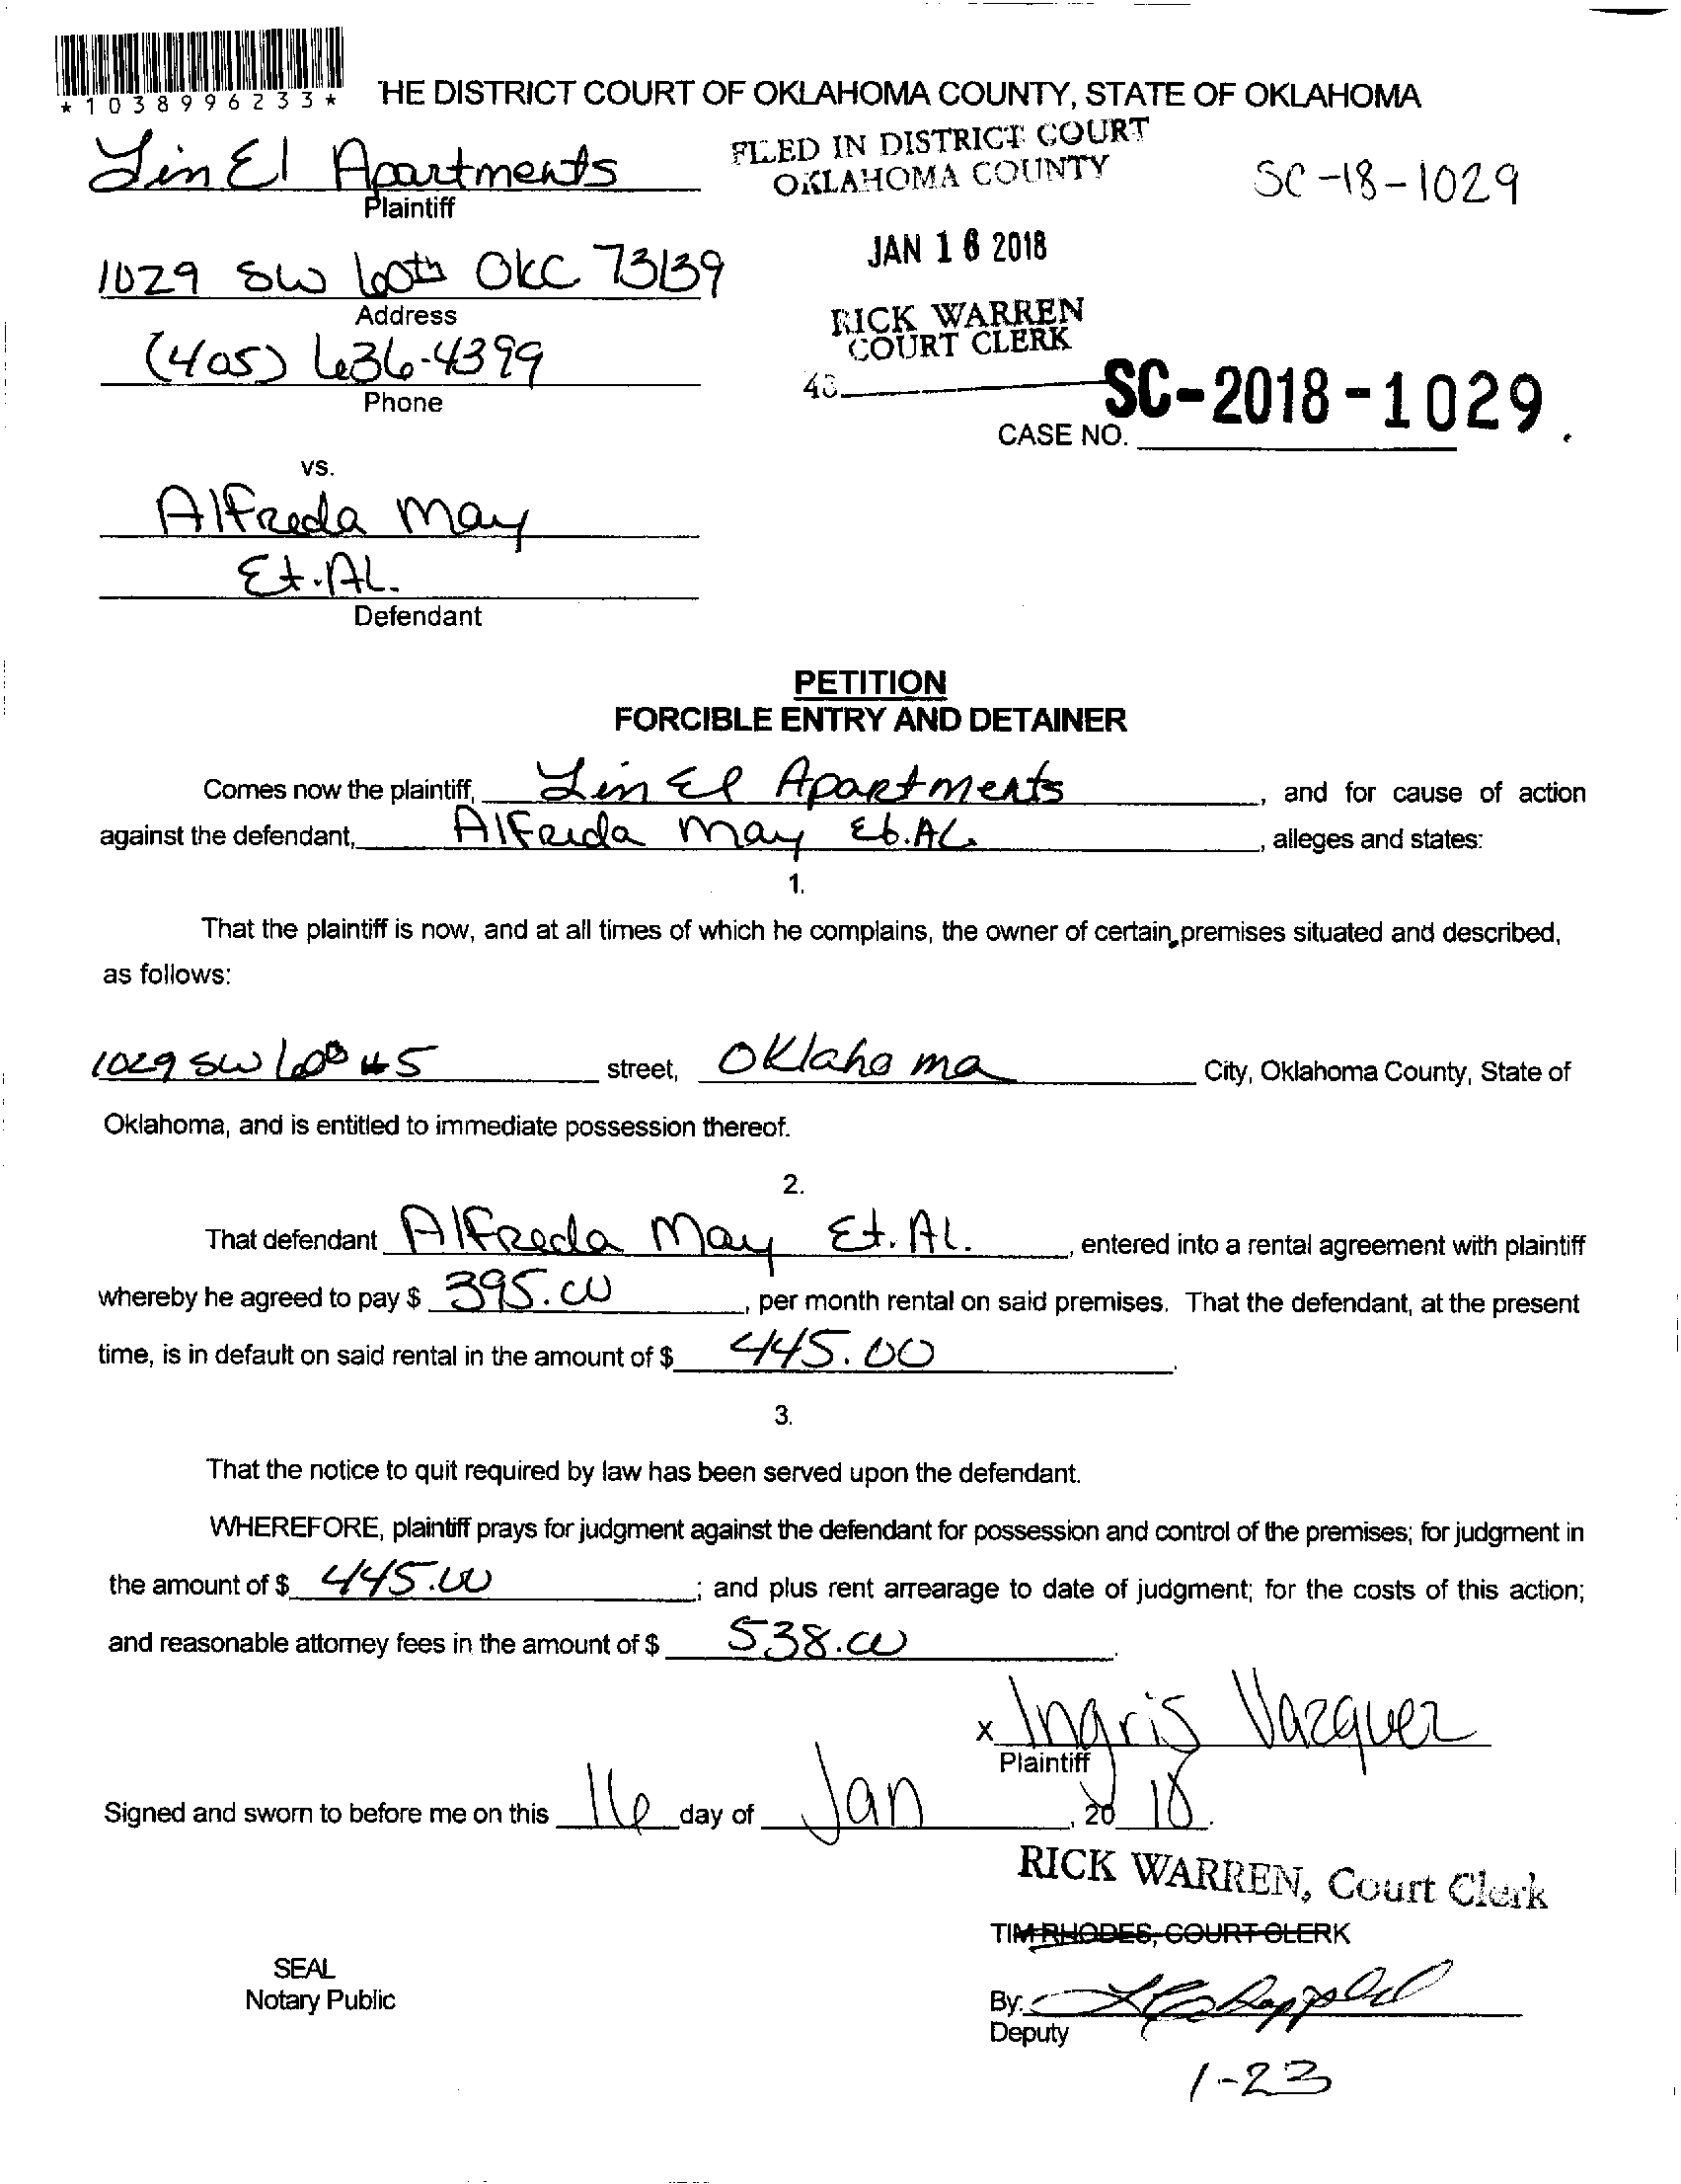 *1038996233*
HE DISTRICT COURT OF OKLAHOMA COUNTY, STATE OF OKLAHOMA
Lin El Apartments
Plaintiff
FILED IN DISTRICT COURT
OKLAHOMA COUNTY
SC-18-1029
JAN 16 2018
1029 SW 60th OKC 73139
Address
RICK WARREN
COURT CLERK
(405) 636-4399
Phone
SC-2018-1029
CASE NO.
vs.
Alfreda May
Et. AL.
Defendant
PETITION
FORCIBLE ENTRY AND DETAINER
Comes now the plaintiff, Lin El Apartments, and for cause of action
against the defendant, Alfreda May Et. AL., alleges and states:
1.
That the plaintiff is now, and at all times of which he complains, the owner of certain premises situated and described,
as follows:
1029 SW 60th #5 street, Oklahoma City, Oklahoma County, State of
Oklahoma, and is entitled to immediate possession thereof.
2.
That defendant Alfreda May Et. AL., entered into a rental agreement with plaintiff
whereby he agreed to pay $ 395.00, per month rental on said premises. That the defendant, at the present
time, is in default on said rental in the amount of $ 445.00.
3.
That the notice to quit required by law has been served upon the defendant.
WHEREFORE, plaintiff prays for judgment against the defendant for possession and control of the premises; for judgment in
the amount of $ 445.00; and plus rent arrearage to date of judgment; for the costs of this action;
and reasonable attorney fees in the amount of $ 538.00.
x Ingris Vazquez
Plaintiff
Signed and sworn to before me on this 16 day of Jan, 20 18.
RICK WARREN, Court Clerk
TIM RHODES, COURT CLERK
SEAL
Notary Public
By:
Deputy
1-23